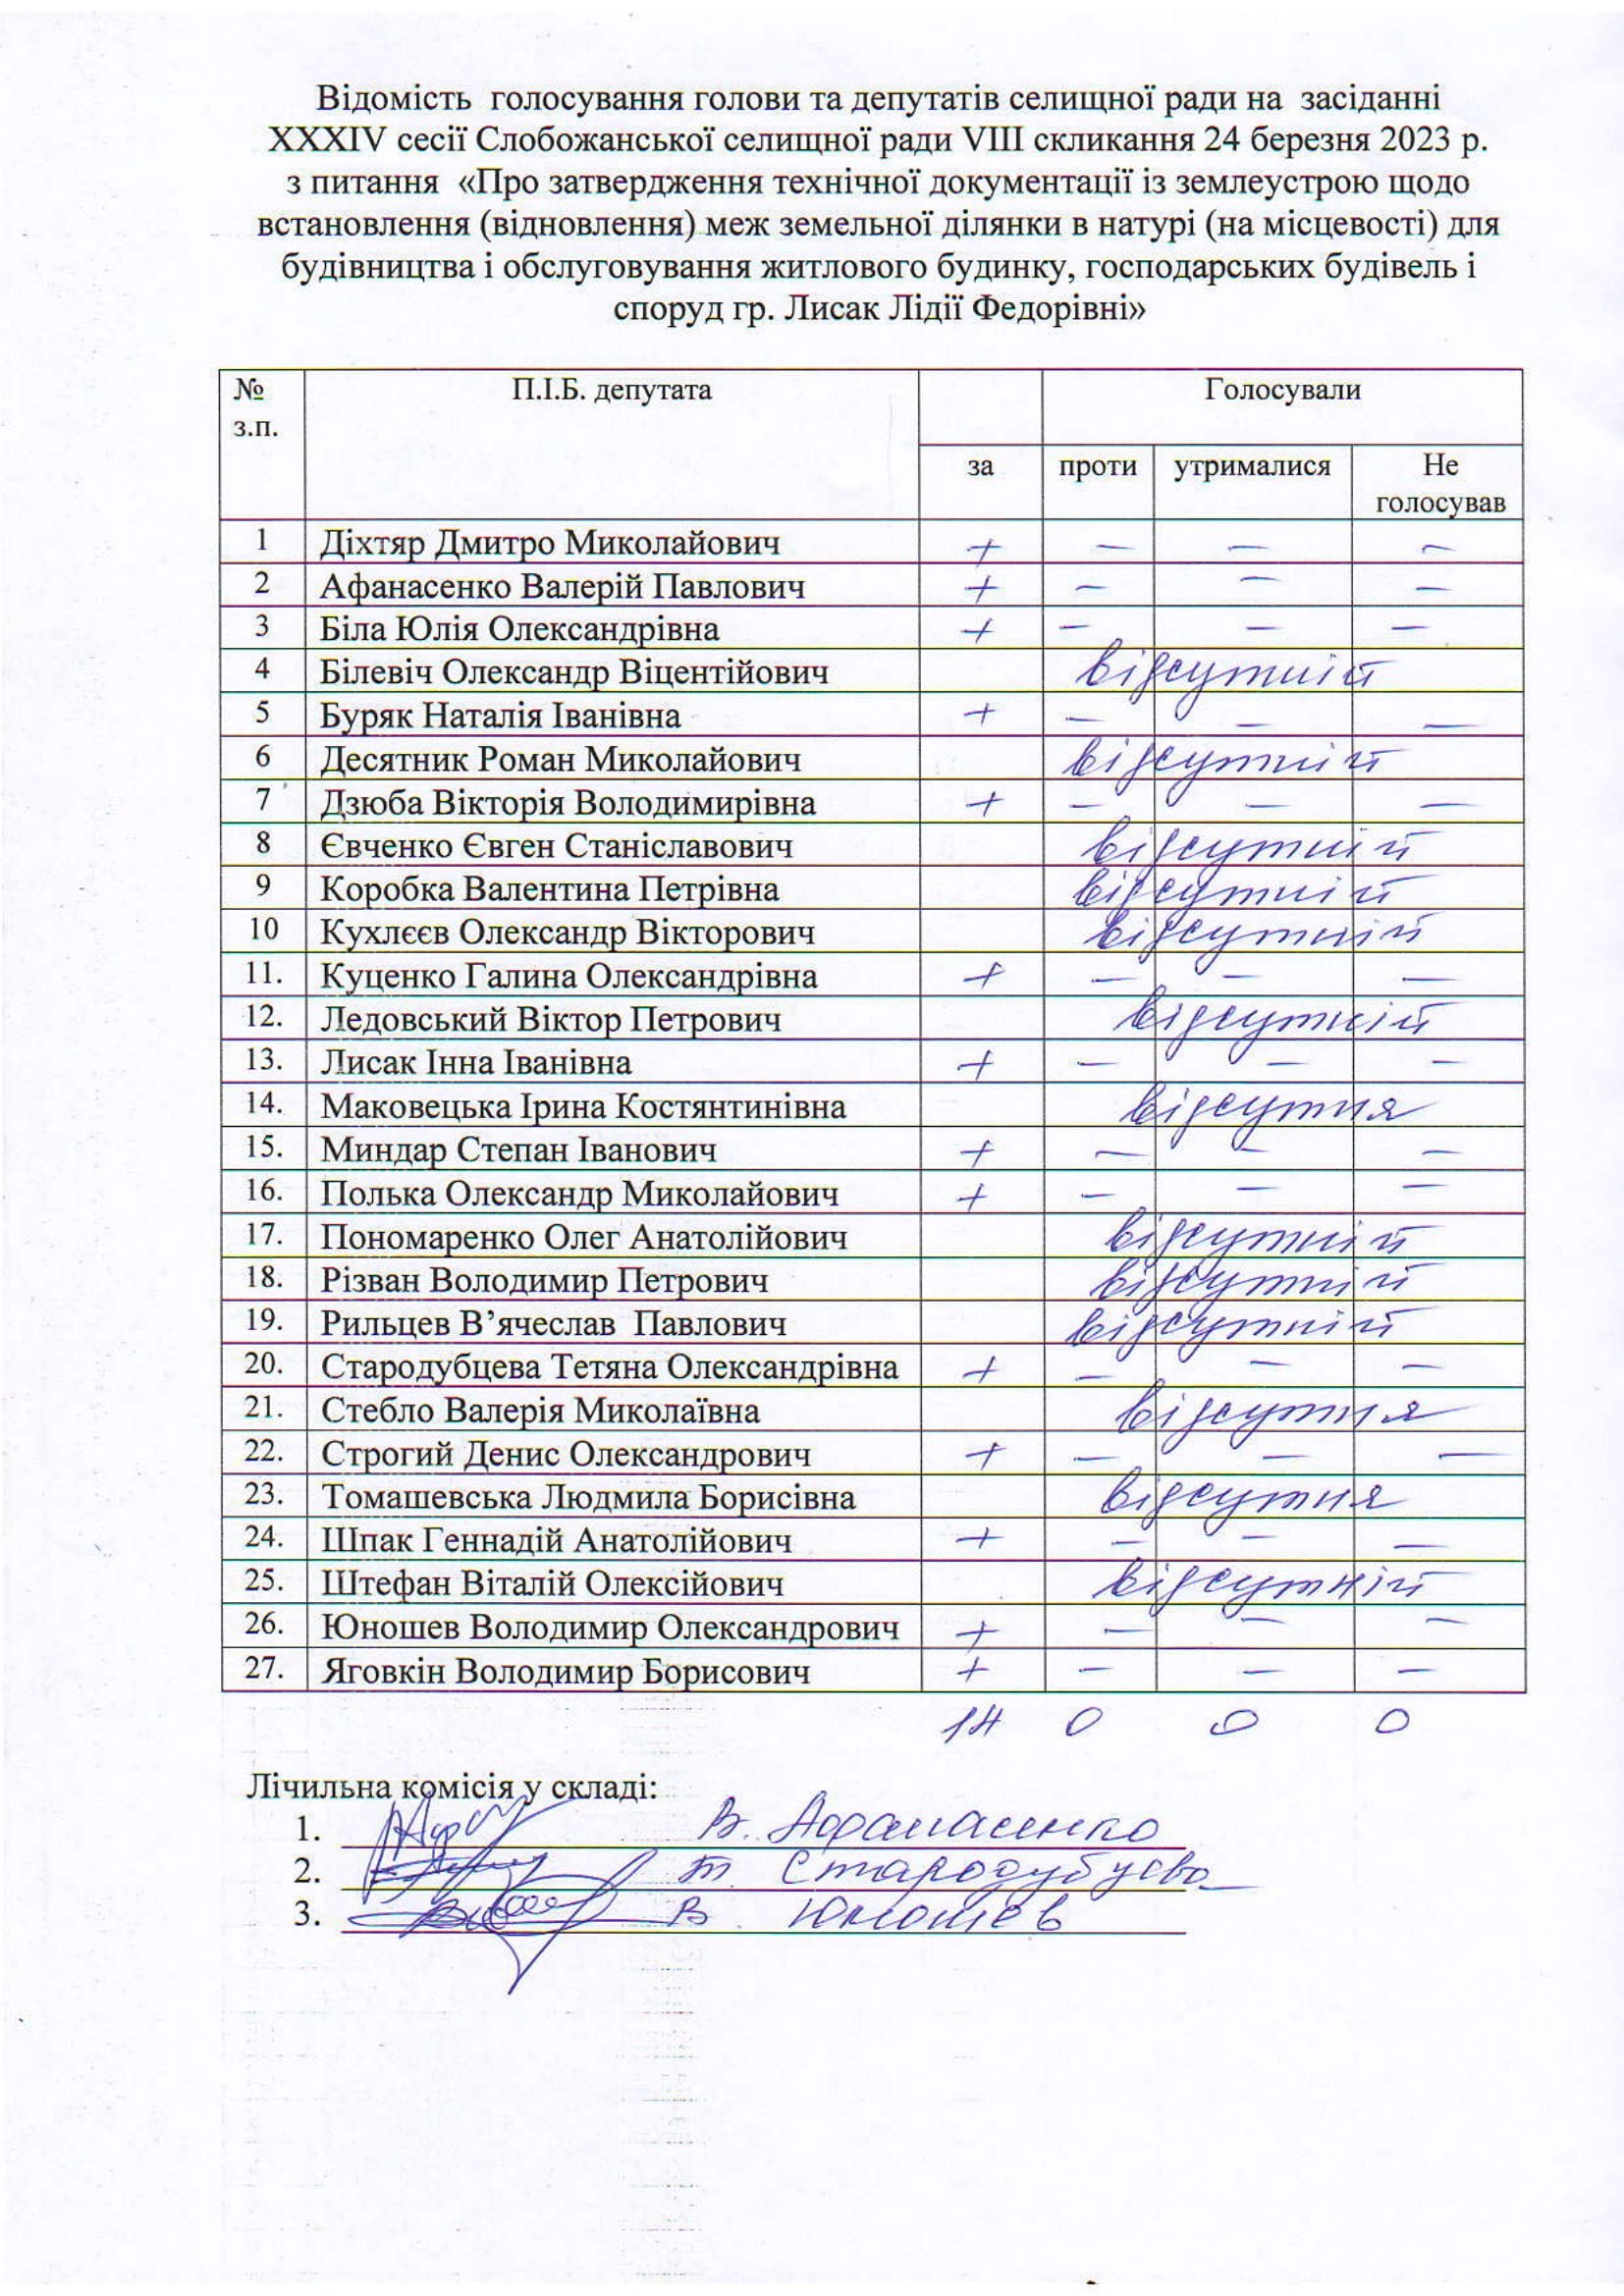 Відомість голосування голови та депутатів селищної ради на засіданні
XXXIV сесії Слобожанської селищної ради VIII скликання 24 березня 2023 р.
з питання «Про затвердження технічної документації із землеустрою щодо
встановлення (відновлення) меж земельної ділянки в натурі (на місцевості) для
будівництва і обслуговування житлового будинку, господарських будівель і
споруд гр. Лисак Лідії Федорівні»
№ з.п. П.І.Б. депутата Голосували
за проти утрималися Не голосував
1 Діхтяр Дмитро Миколайович + — — —
2 Афанасенко Валерій Павлович + — — —
3 Біла Юлія Олександрівна + — — —
4 Білевіч Олександр Віцентійович відсутній
5 Буряк Наталія Іванівна + — — —
6 Десятник Роман Миколайович відсутній
7 Дзюба Вікторія Володимирівна + — — —
8 Євченко Євген Станіславович відсутній
9 Коробка Валентина Петрівна відсутній
10 Кухлєєв Олександр Вікторович відсутній
11. Куценко Галина Олександрівна + — — —
12. Ледовський Віктор Петрович відсутній
13. Лисак Інна Іванівна + — — —
14. Маковецька Ірина Костянтинівна відсутня
15. Миндар Степан Іванович + — — —
16. Полька Олександр Миколайович + — — —
17. Пономаренко Олег Анатолійович відсутній
18. Різван Володимир Петрович відсутній
19. Рильцев В’ячеслав Павлович відсутній
20. Стародубцева Тетяна Олександрівна + — — —
21. Стебло Валерія Миколаївна відсутня
22. Строгий Денис Олександрович + — — —
23. Томашевська Людмила Борисівна відсутня
24. Шпак Геннадій Анатолійович + — — —
25. Штефан Віталій Олексійович відсутній
26. Юношев Володимир Олександрович + — — —
27. Яговкін Володимир Борисович + — — —
14 0 0 0
Лічильна комісія у складі:
1. В. Афанасенко
2. Т. Стародубцева
3. В. Юношев